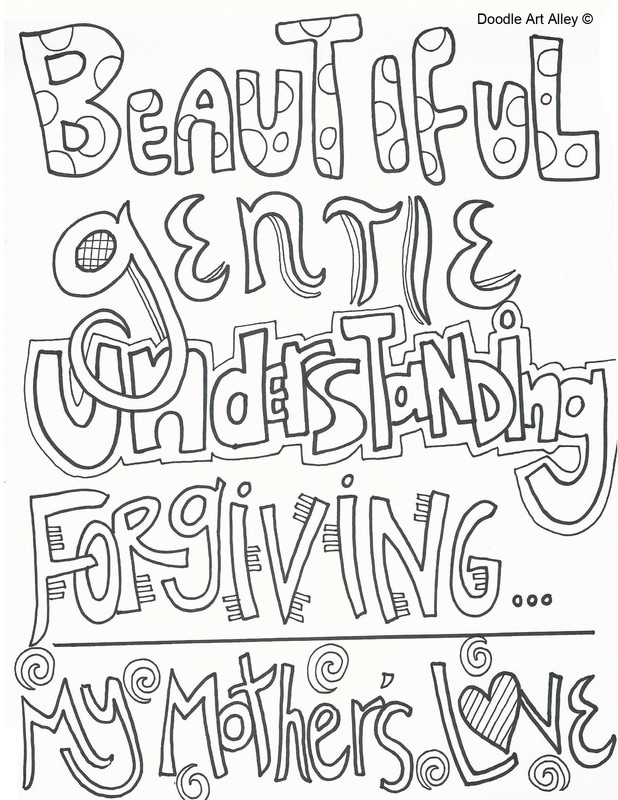 Doodle Art Alley ©
BEAUTIFUL
gENTlE
UnderSTaNDing
FORgiViNG...
My Mother's LOVE